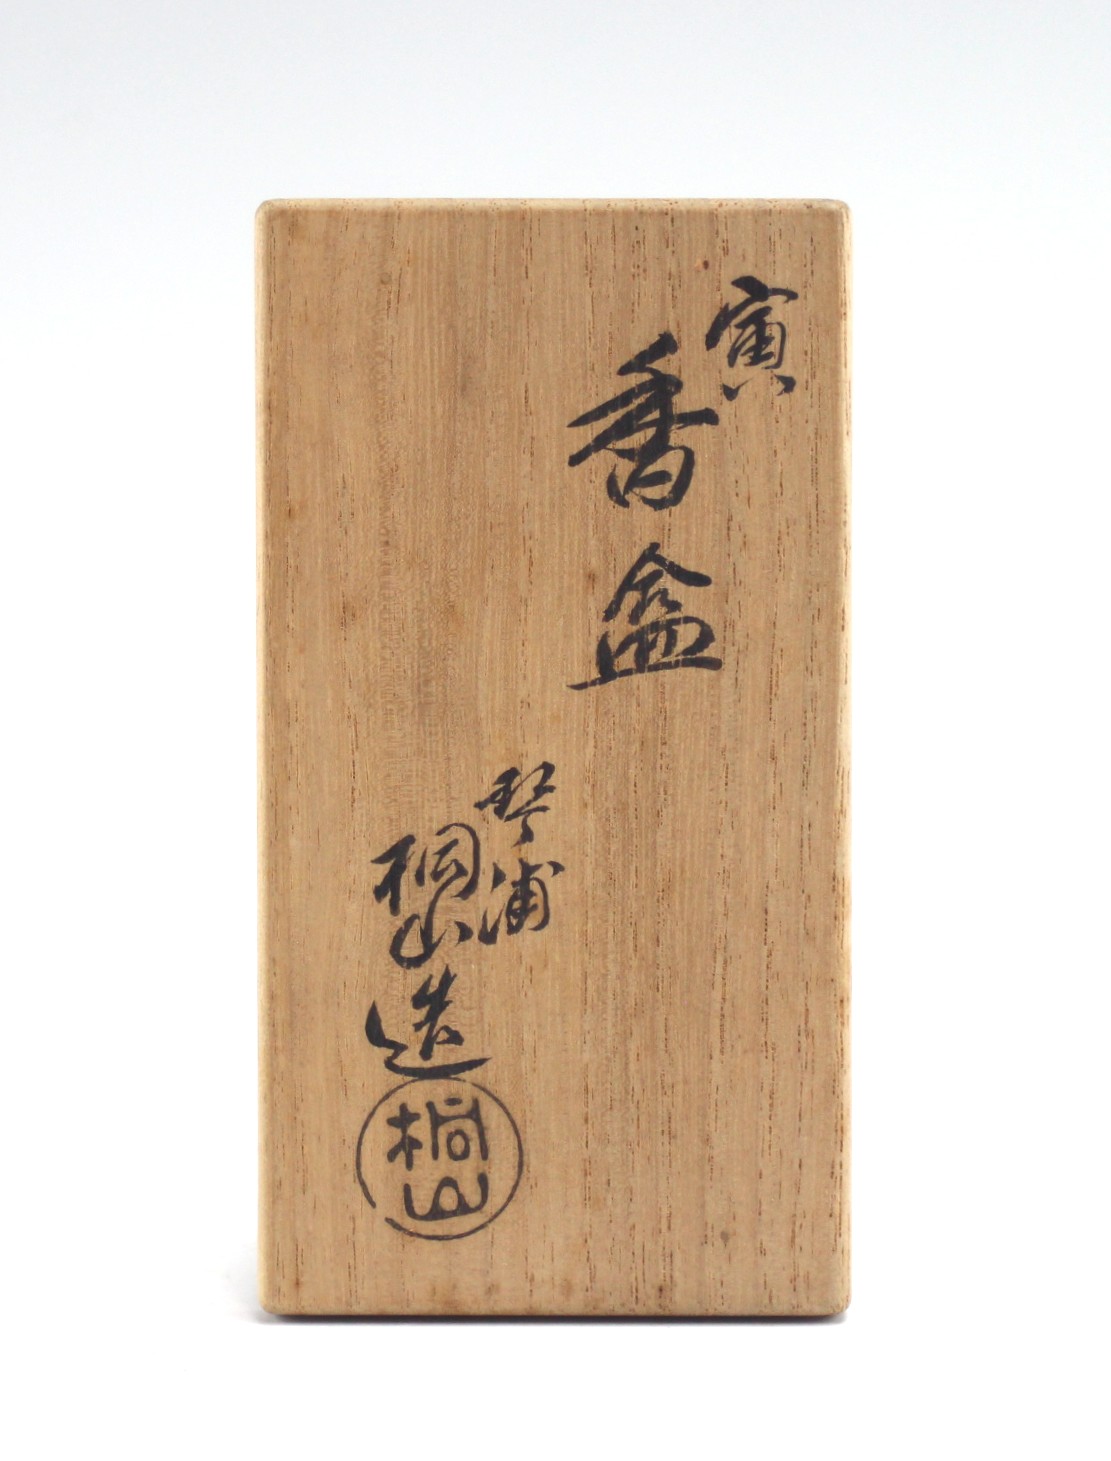 寅
香盒
琴浦
桐山造
桐山